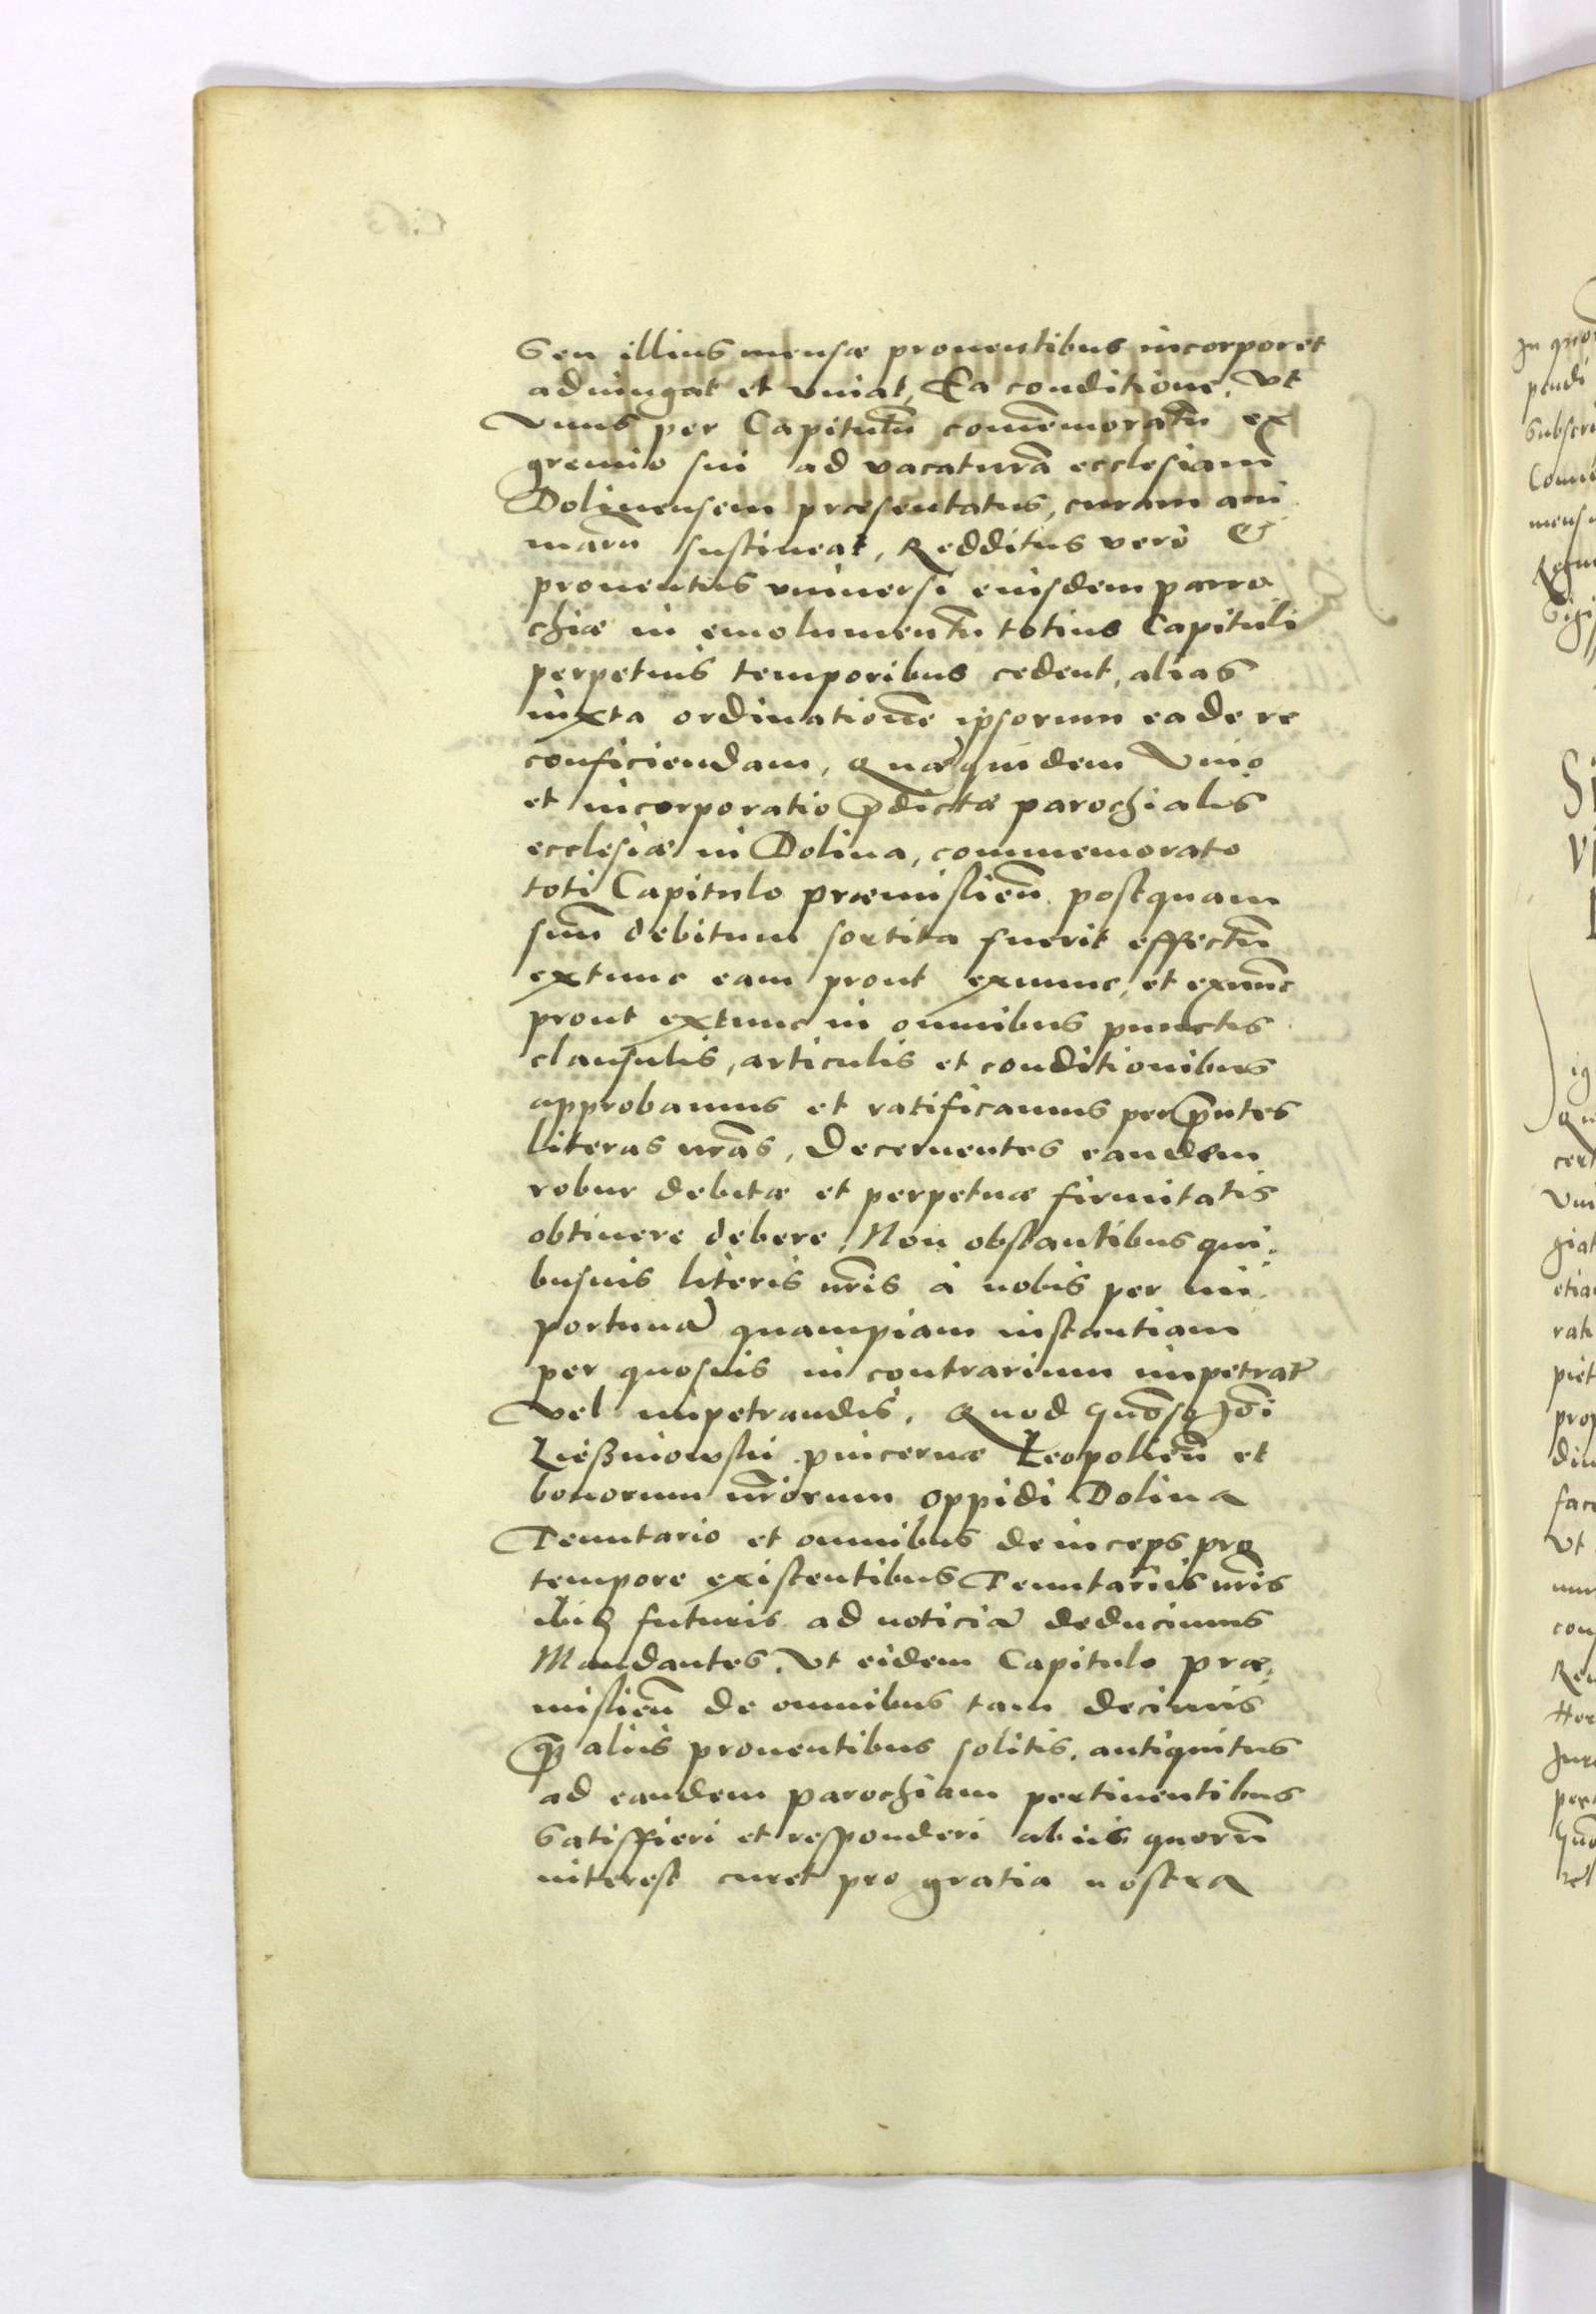 Seu illius mensæ prouentibus incorporet
adiungat et vniat, Ea conditione, Vt
Vnus per Capitulū comēmoratū ex
gremio sui ad vacaturā ecclesiam
Dolinensem præsentatus, curam ani
marū sustineat, Redditus verò &
prouentus vniuersi eiusdem parro
chiæ in emolumentū totius Capituli
perpetuis temporibus cedent, alias
iuxta ordinationē ipsorum ea de re
conficiendam, Quæquidem Vnio
et incorporatio p̄dictæ parochialis
ecclesiæ in Dolina, commemorato
toti Capitulo præmislien̄ postquam
suū debitum sortita fuerit effectū
extunc eam prout exnunc, et exnūc
prout extunc in omnibus punctis
clausulis, articulis et conditionibus
approbamus et ratificamus per p̄ntes
literas nr̄as, Decernentes eandem
robur debitæ et perpetuæ firmitatis
obtinere debere, Non obstantibus qui
busuis literis nr̄is à nobis per im
portunā quampiam instantiam
per quosuis in contrarium impetrat
Vel impetrandis, Quod
pincernæ Leopolien̄ et
bonorum nr̄orum oppidi Dolina
Tenutario et omnibus deinceps pro
tempore existentibus Tenutariis nr̄is
ibiq futuris ad noticiā deducimus
Mandantes, Vt eidem Capitulo præ
mislien̄ de omnibus tam decimis
q̄ aliis prouentibus solitis, antiquitus
ad eandem parochiam pertinentibus
Satisfieri et responderi ab iis quorū
interest curet pro gratia nostra